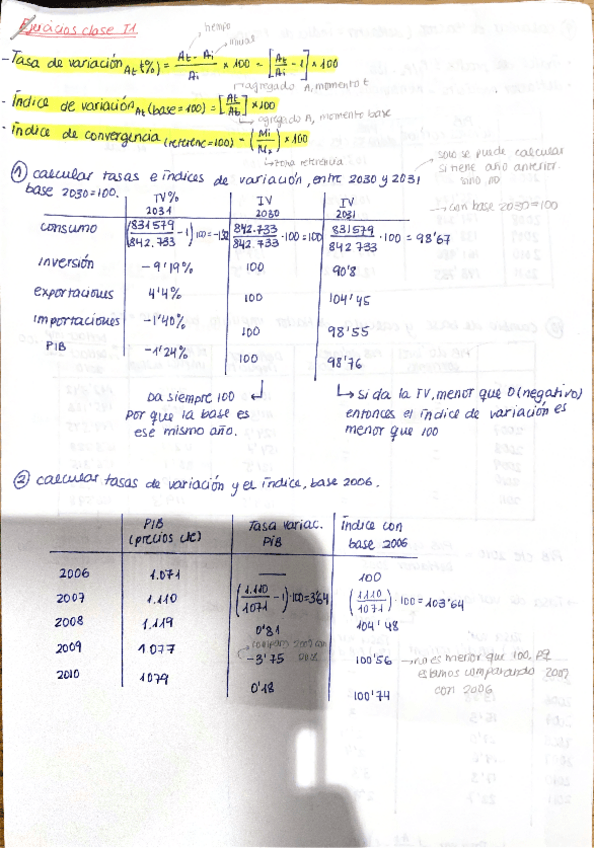 Ejercicios clase T1
tiempo
- Tasa de variación At t(%) = At - Ai / Ai × 100 = [At / Ai - 1] × 100
agregado A, momento t
- Índice de variación At (base = 100) = [At / Ab] × 100
agregado A, momento base
- índice de convergencia (referenc = 100) = × 100
zona referencia
① calcular tasas e índices de variación, entre 2030 y 2031
base 2030=100.
solo se puede calcular
si tiene año anterior.
sino no
con base 2030=100
TV% 2031 | IV 2030 | IV 2031
consumo (831579 / 842.733 - 1) 100 = | 842.733 / 842.733 · 100 = 100 | 831579 / 842733 · 100 = 98'67
inversión -9'19% 100 90'8
exportaciones 4'4% 100 104'45
importaciones -1'40% 100 98'55
PIB -1'24% 100 98'76
Da siempre 100
por que la base es
ese mismo año.
si da la TV, menor que 0 (negativo)
entonces el índice de variación es
menor que 100
② calcular tasas de variación y el índice, base 2006.
PIB (precios cte) | Tasa variac. PIB | índice con base 2006
2006 1.071 — 100
2007 1.110 (1.110 / 1071 - 1) · 100 = 3'64 (1110 / 1071) · 100 = 103'64
2008 1.119 0'81 104'48
2009 1077 -3'75 100'56
no es menor que 100, pq
estamos comparando
con 2006
2010 1079 0'18 100'74